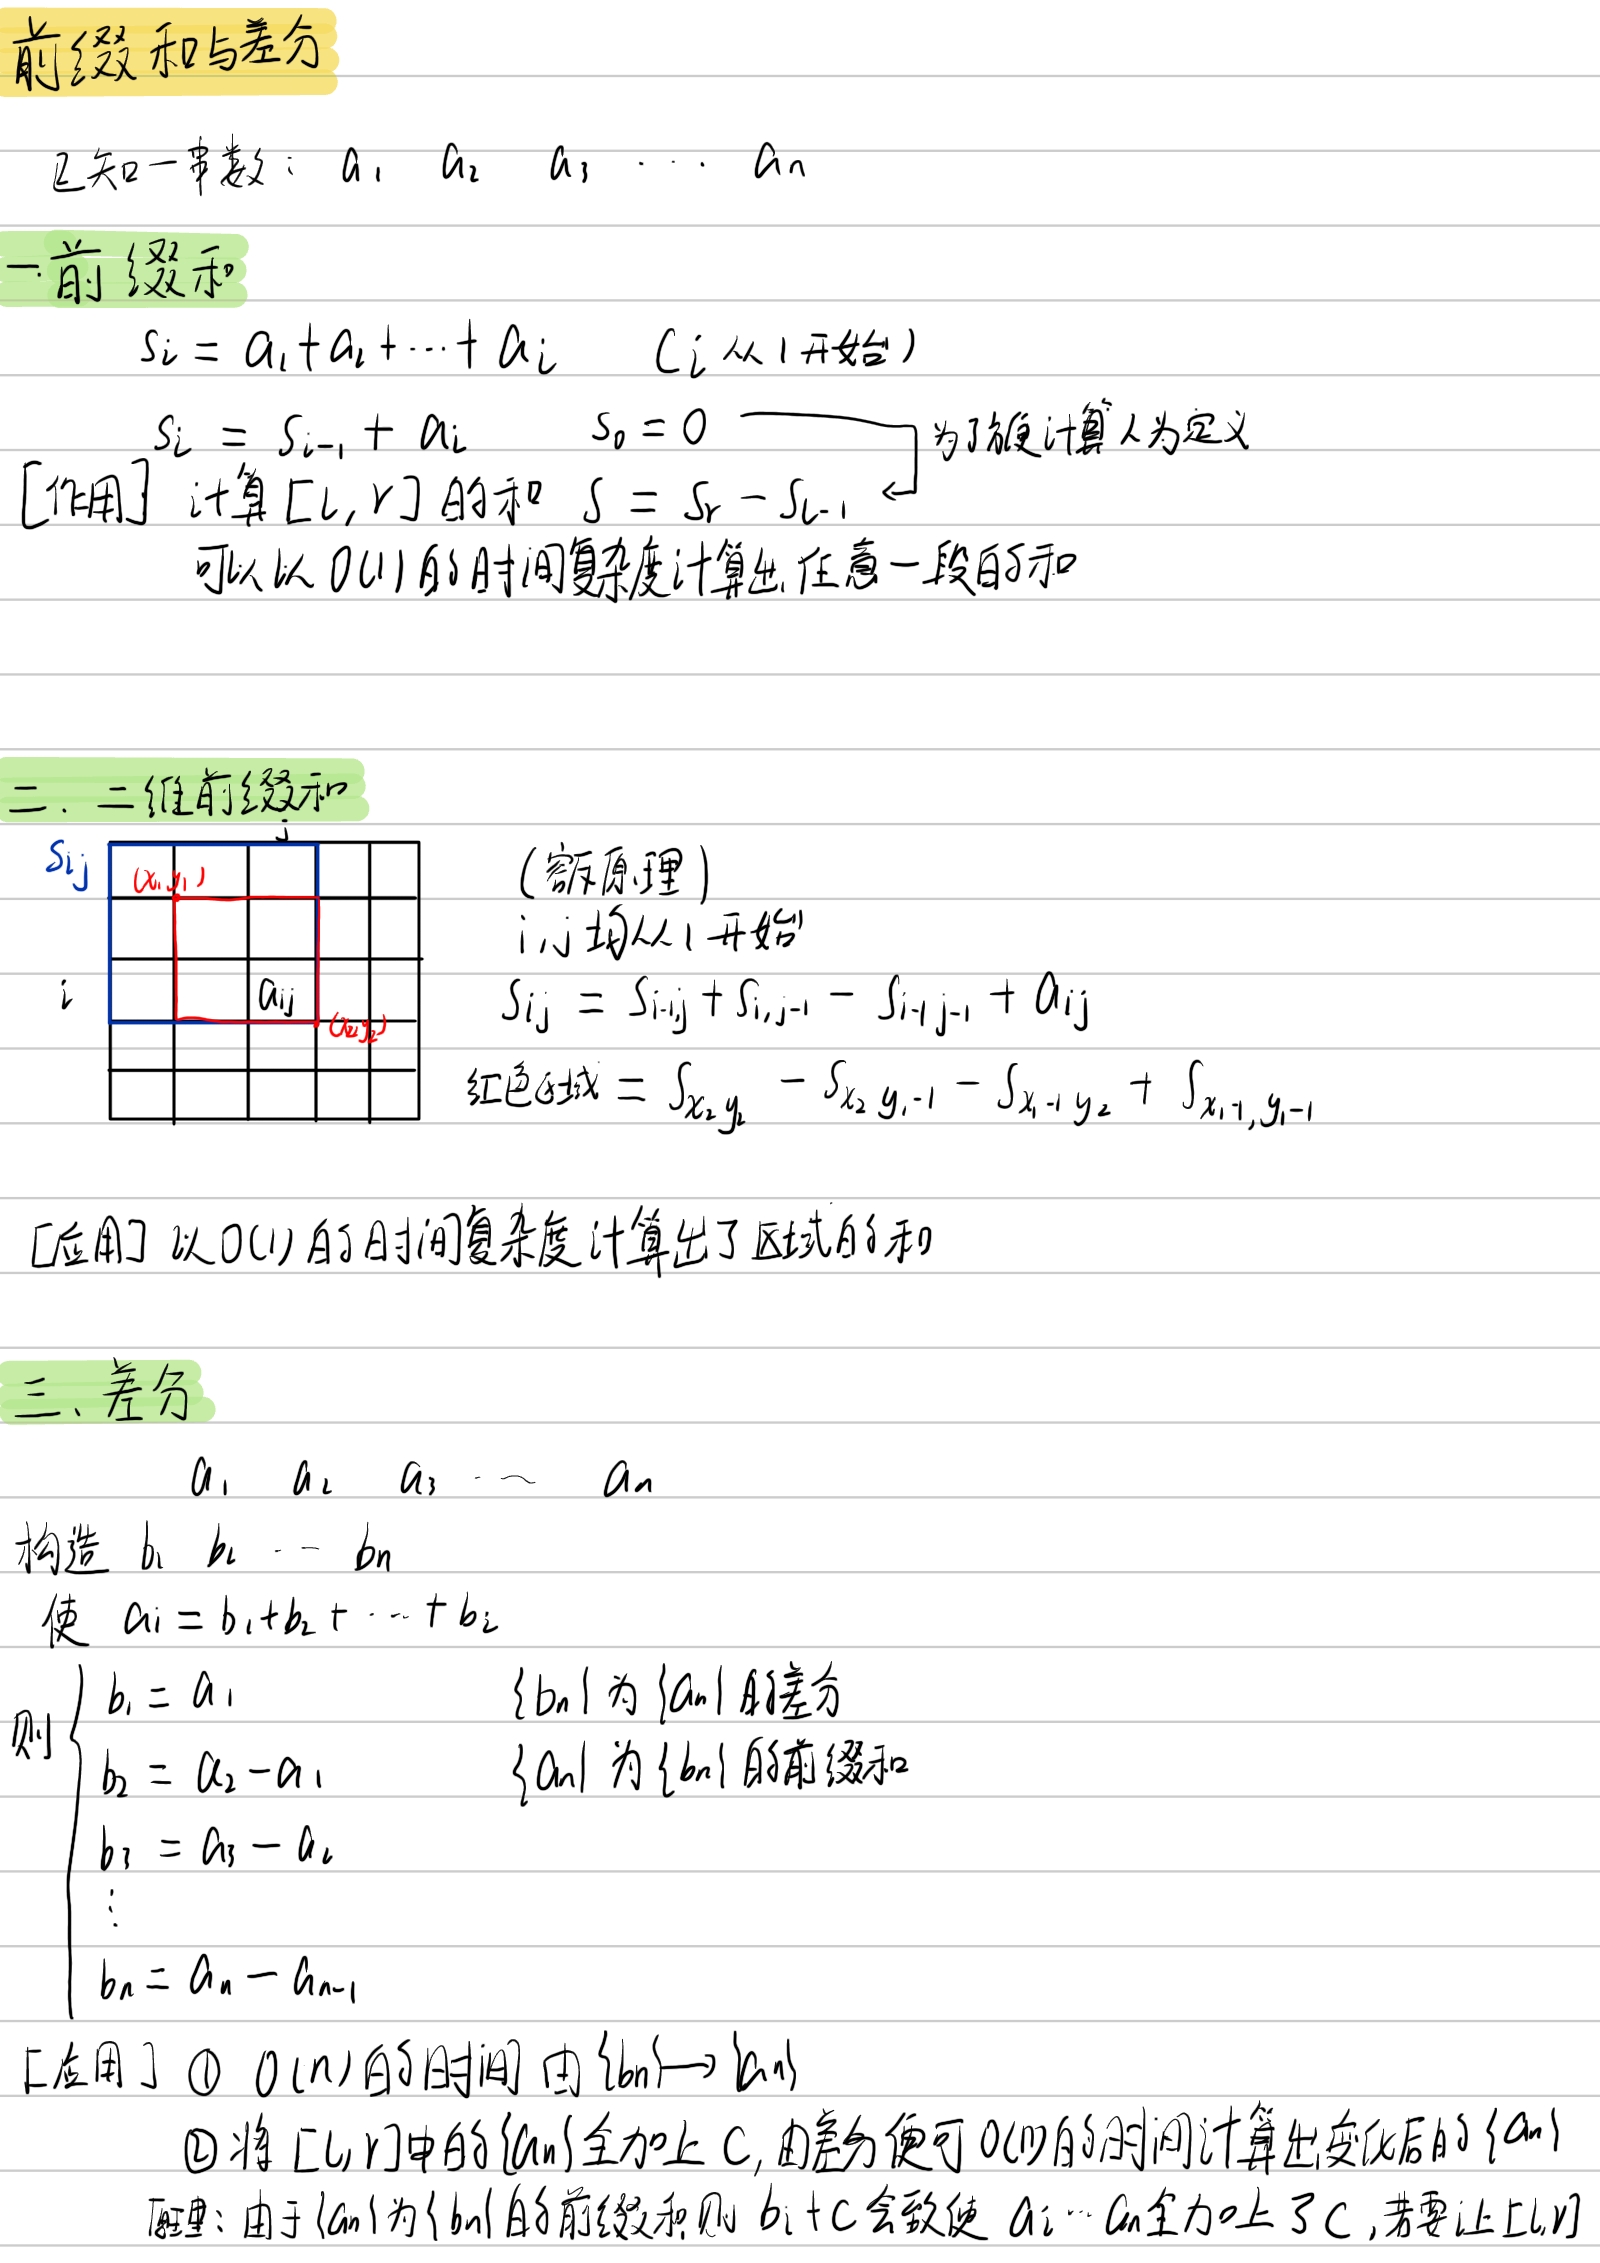 前缀和与差分
已知一串数： a₁ a₂ a₃ ⋯ aₙ
一.前缀和
Sᵢ = a₁+a₂+⋯+aᵢ （i从1开始）
Sᵢ = Sᵢ₋₁ + aᵢ S₀ = 0 为了方便计算人为定义
[作用] 计算[l,r]的和 S = Sᵣ - Sₗ₋₁
可以以O(1)的时间复杂度计算出任意一段的和
二．二维前缀和
j
Sij
(x₁,y₁)
i
aij
(x₂,y₂)
（容斥原理）
i,j均从1开始
Sij = Si-1,j + Si,j-1 - Si-1 j-1 + aij
红色区域 = Sx₂y₂ - Sx₂ y₁-1 - Sx₁-1 y₂ + Sx₁-1, y₁-1
[应用] 以O(1)的时间复杂度计算出了区域的和
三、差分
a₁ a₂ a₃ ⋯ aₙ
构造 b₁ b₂ ⋯ bₙ
使 aᵢ = b₁+b₂+⋯+bᵢ
则 { b₁ = a₁ {bₙ}为{aₙ}的差分
b₂ = a₂-a₁ {aₙ}为{bₙ}的前缀和
b₃ = a₃-a₂
⋮
bₙ = aₙ-aₙ₋₁
[应用] ① O(n)的时间由{bₙ}→{aₙ}
②将[l,r]中的{aₙ}全加上C,由差分便可O(1)的时间计算出变化后的{aₙ}
原理：由于{aₙ}为{bₙ}的前缀和,则 bᵢ+C会致使 aᵢ⋯aₙ全加上了C,若要让[l,r]